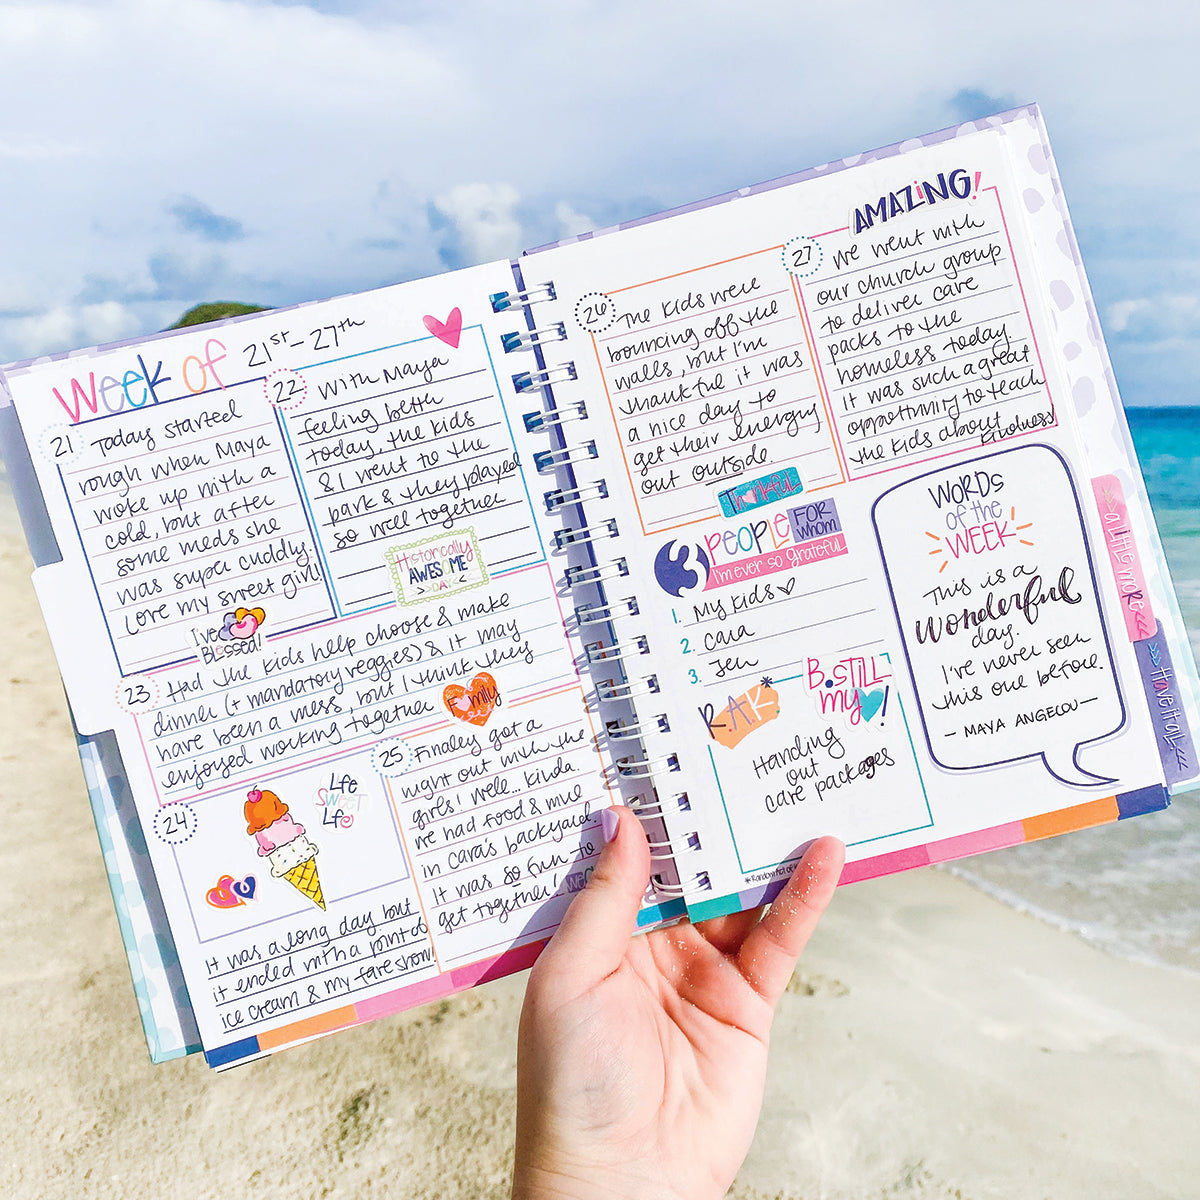 Week of 21ST-27TH
21
Today started
rough when Maya
woke up with a
cold, but after
some meds she
was super cuddly.
Love my sweet girl!
I've
Blessed!
22
With Maya
feeling bettr
today, the kids
& I went to the
park & they played
so well together
Historically
AWESOME
>>DAY<<
23
Had the kids help choose & make
dinner (+ mandatory veggies) & it may
have been a mess, but I think they
enjoyed working together
Family
24
Life
SWEET
Life
It was a long day but
it ended with a pint of
ice cream & my fave show!
25
Finaley got a
night out with the
girls! Well... kinda.
We had food & wine
in Cara's backyard.
It was so fun to
get together!
26
The kids were
bouncing off the
walls, but I'm
thankful it was
a nice day to
get their energy
out outside.
Thankful
27
AMAZING!
We went with
our church group
to deliver care
packs to the
homeless today.
It was such a great
opportunity to teach
the kids about
kindness
3 People FOR whom
I'm ever so grateful
1. My Kids
2. Cara
3. Jen
R.A.K*
B.STILL
my !
Handing
out
care packages
*Random Act of
WORDS
of the
WEEK
This is a
wonderful
day.
I've never seen
this one before.
- MAYA ANGELOU-
a little more <<
>> Have it al <<